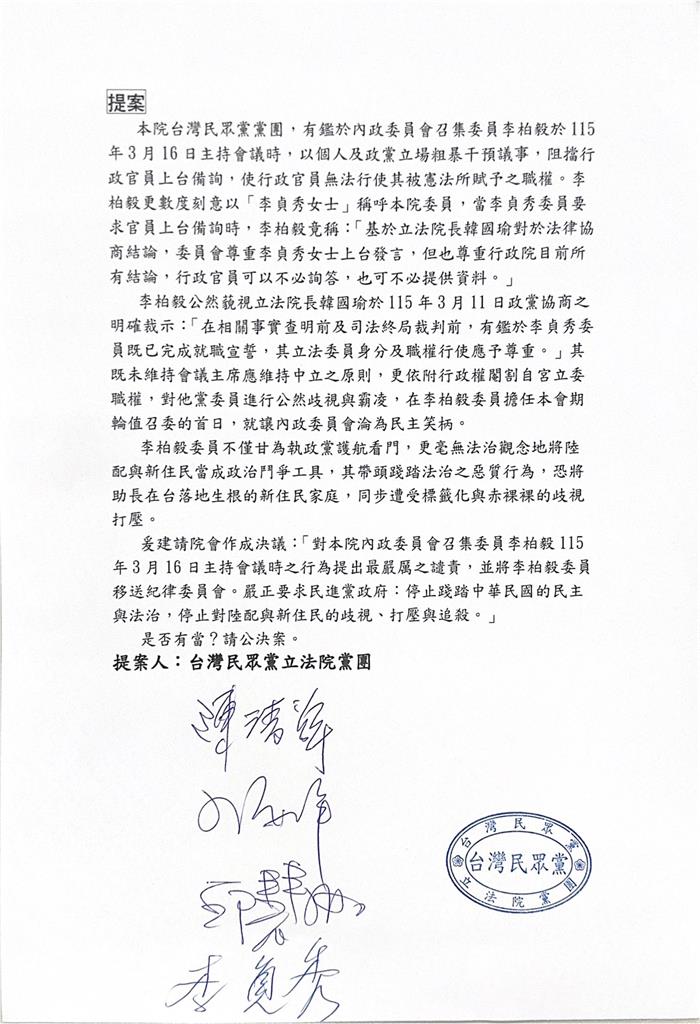 提案
本院台灣民眾黨黨團，有鑑於內政委員會召集委員李柏毅於115
年3月16日主持會議時，以個人及政黨立場粗暴干預議事，阻擋行
政官員上台備詢，使行政官員無法行使其被憲法所賦予之職權。李
柏毅更數度刻意以「李貞秀女士」稱呼本院委員，當李貞秀委員要
求官員上台備詢時，李柏毅竟稱：「基於立法院長韓國瑜對於法律協
商結論，委員會尊重李貞秀女士上台發言，但也尊重行政院目前所
有結論，行政官員可以不必詢答，也可不必提供資料。」
李柏毅公然藐視立法院長韓國瑜於115年3月11日政黨協商之
明確裁示：「在相關事實查明前及司法終局裁判前，有鑑於李貞秀委
員既已完成就職宣誓，其立法委員身分及職權行使應予尊重。」其
既未維持會議主席應維持中立之原則，更依附行政權閹割自宮立委
職權，對他黨委員進行公然歧視與霸凌，在李柏毅委員擔任本會期
輪值召委的首日，就讓內政委員會淪為民主笑柄。
李柏毅委員不僅甘為執政黨護航看門，更毫無法治觀念地將陸
配與新住民當成政治鬥爭工具，其帶頭踐踏法治之惡質行為，恐將
助長在台落地生根的新住民家庭，同步遭受標籤化與赤裸裸的歧視
打壓。
爰建請院會作成決議：「對本院內政委員會召集委員李柏毅115
年3月16日主持會議時之行為提出最嚴厲之譴責，並將李柏毅委員
移送紀律委員會。嚴正要求民進黨政府：停止踐踏中華民國的民主
與法治，停止對陸配與新住民的歧視、打壓與追殺。」
是否有當？請公決案。
提案人：台灣民眾黨立法院黨團
陳清
邱慧
李貞秀
台灣民眾黨
台灣民眾黨
立法院黨團